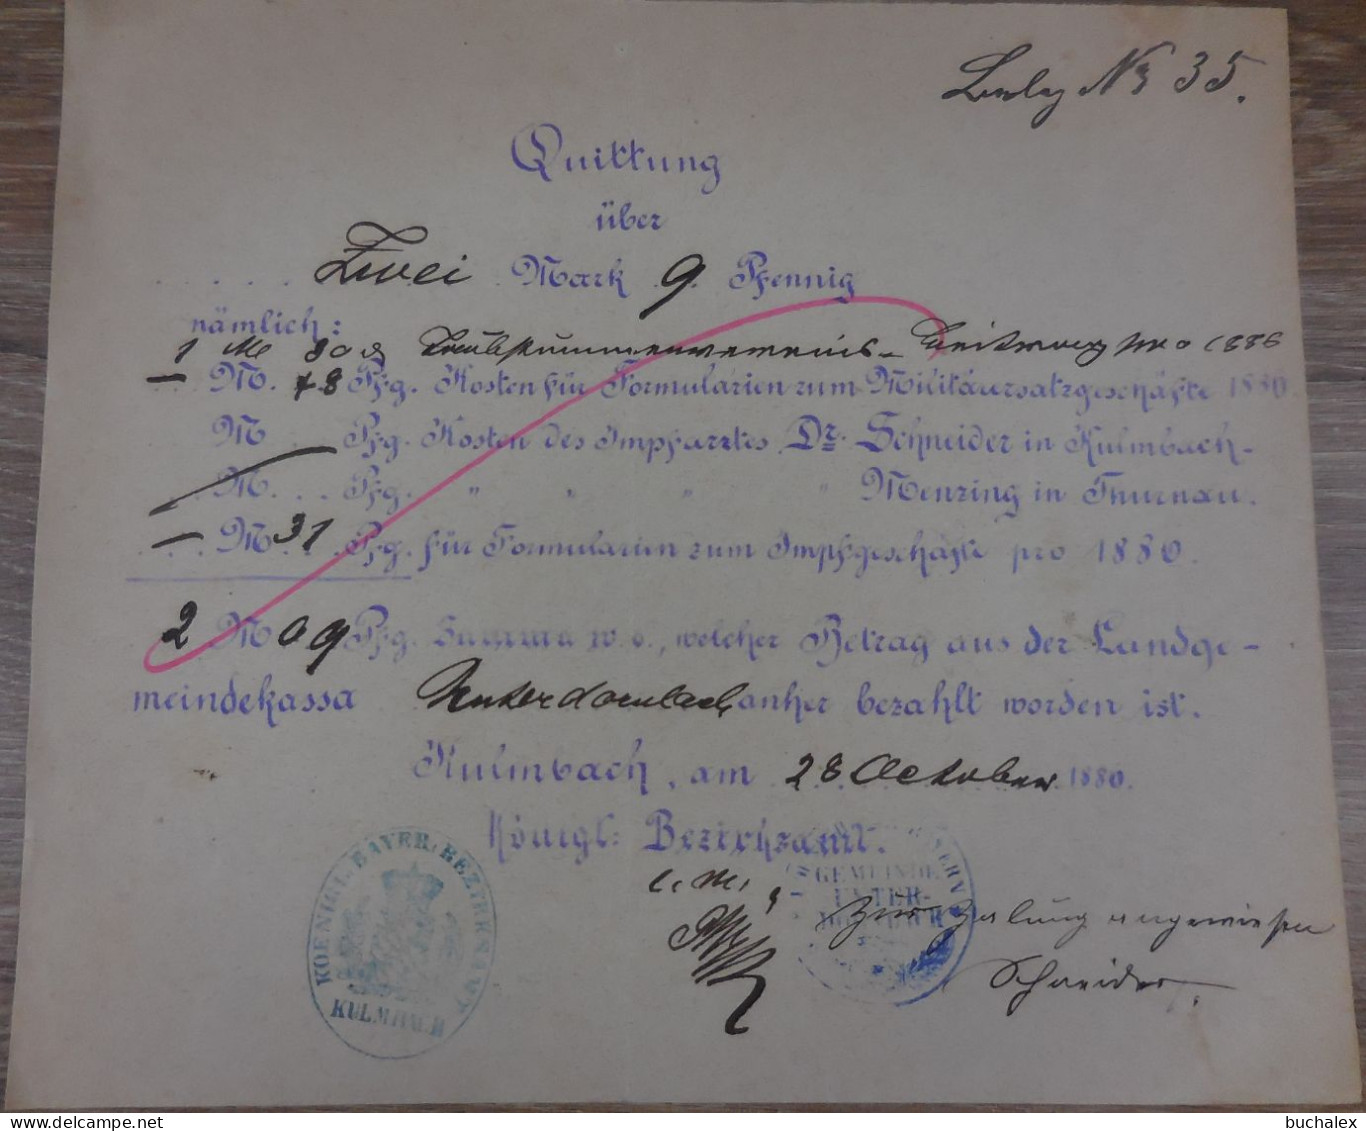 Nr 35.
Quittung
über
Zwei Mark 9 Pfennig
nämlich:
1 M 80 Taubstummenvereins-Beitrag pro 1886
— M. 78 Pfg. Kosten für Formularien zum Militärersatzgeschäfte 1880
M Pfg. Kosten des Impfarztes Dr. Schneider in Kulmbach-
M. Pfg. " " " " Menzing in Thurnau.
— M 31 Pfg. für Formularien zum Impfgeschäfte pro 1880.
2 M 09 Pfg. Summa w. o., welcher Betrag aus der Landge-
meindekassa Unterdornlach anher bezahlt worden ist.
Kulmbach, am 28 October 1880.
Königl: Bezirksamt.
KOENIGL. BAYER. BEZIRKSAMT
KULMBACH
GEMEINDE
UNTER-
Zur Zalung angewiesen
Schneider.
buchalex